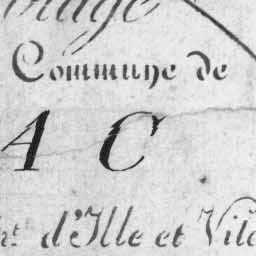 Commune de
A C
d'Ille et Vil